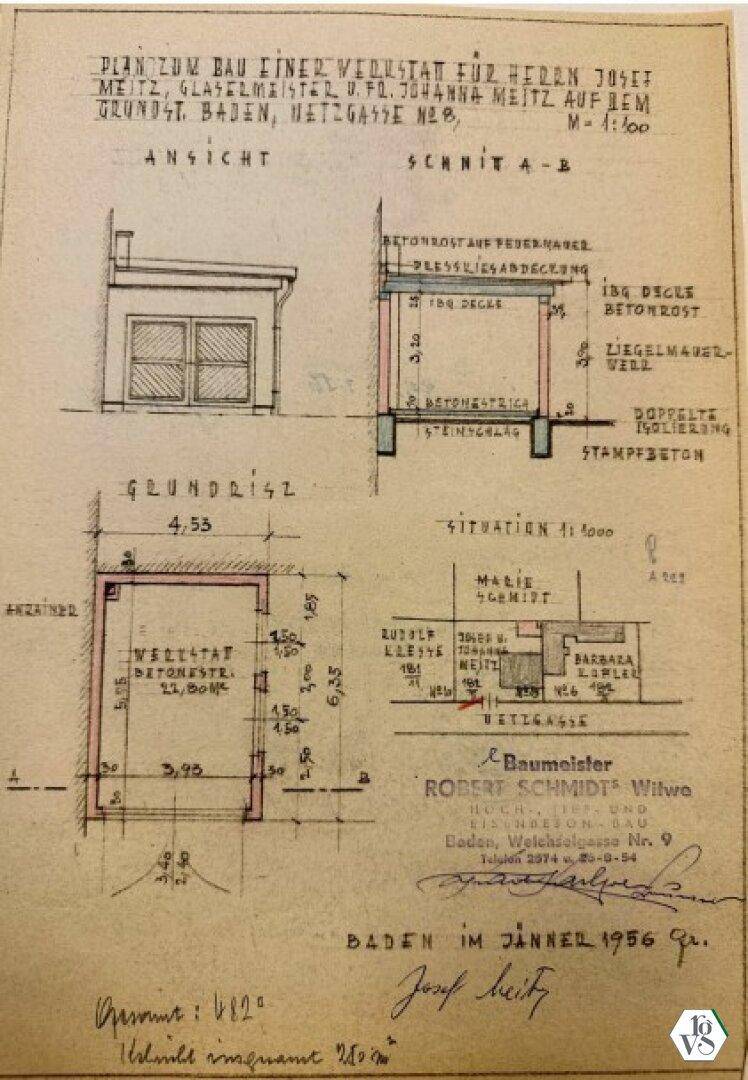 PLAN ZUM BAU EINER WERKSTATT FÜR HERRN JOSEF
MEITZ, GLASERMEISTER U. FR. JOHANNA MEITZ AUF DEM
GRUNDST. BADEN, UETZGASSE No 8,
M = 1:100
ANSICHT
SCHNIT A-B
BETONROST AUF FEUERMAUER
PRESSKIESABDECKUNG
IBG DECKE
IBG DECKE
BETONROST
3,20
ZIEGELMAUER-
WERK
BETONESTRICH
20
STEINSCHLAG
DOPPELTE
ISOLIERUNG
STAMPFBETON
GRUNDRISZ
4,53
SITUATION 1:1000
30
ANRAINER
1,85
1,50
1,50
WERKSTATT
BETONESTR.
22,80 M²
2,00
6,35
1,50
1,50
2,50
A
30
3,93
30
B
3,40
2,40
MARIE
SCHMIDT
RUDOLF
KRESSE
JOSEF U.
JOHANNA
MEITZ
BARBARA
No 8
No 6
UETZGASSE
Baumeister
ROBERT SCHMIDTs Witwe
HOCH-, TIEF- UND
EISENBETON-BAU
Baden, Weichselgasse Nr. 9
Telefon 2574 u.
BADEN IM JÄNNER 1956 Gr.
Josef Meitz
Gesamt: 482
insgesamt
rgvs